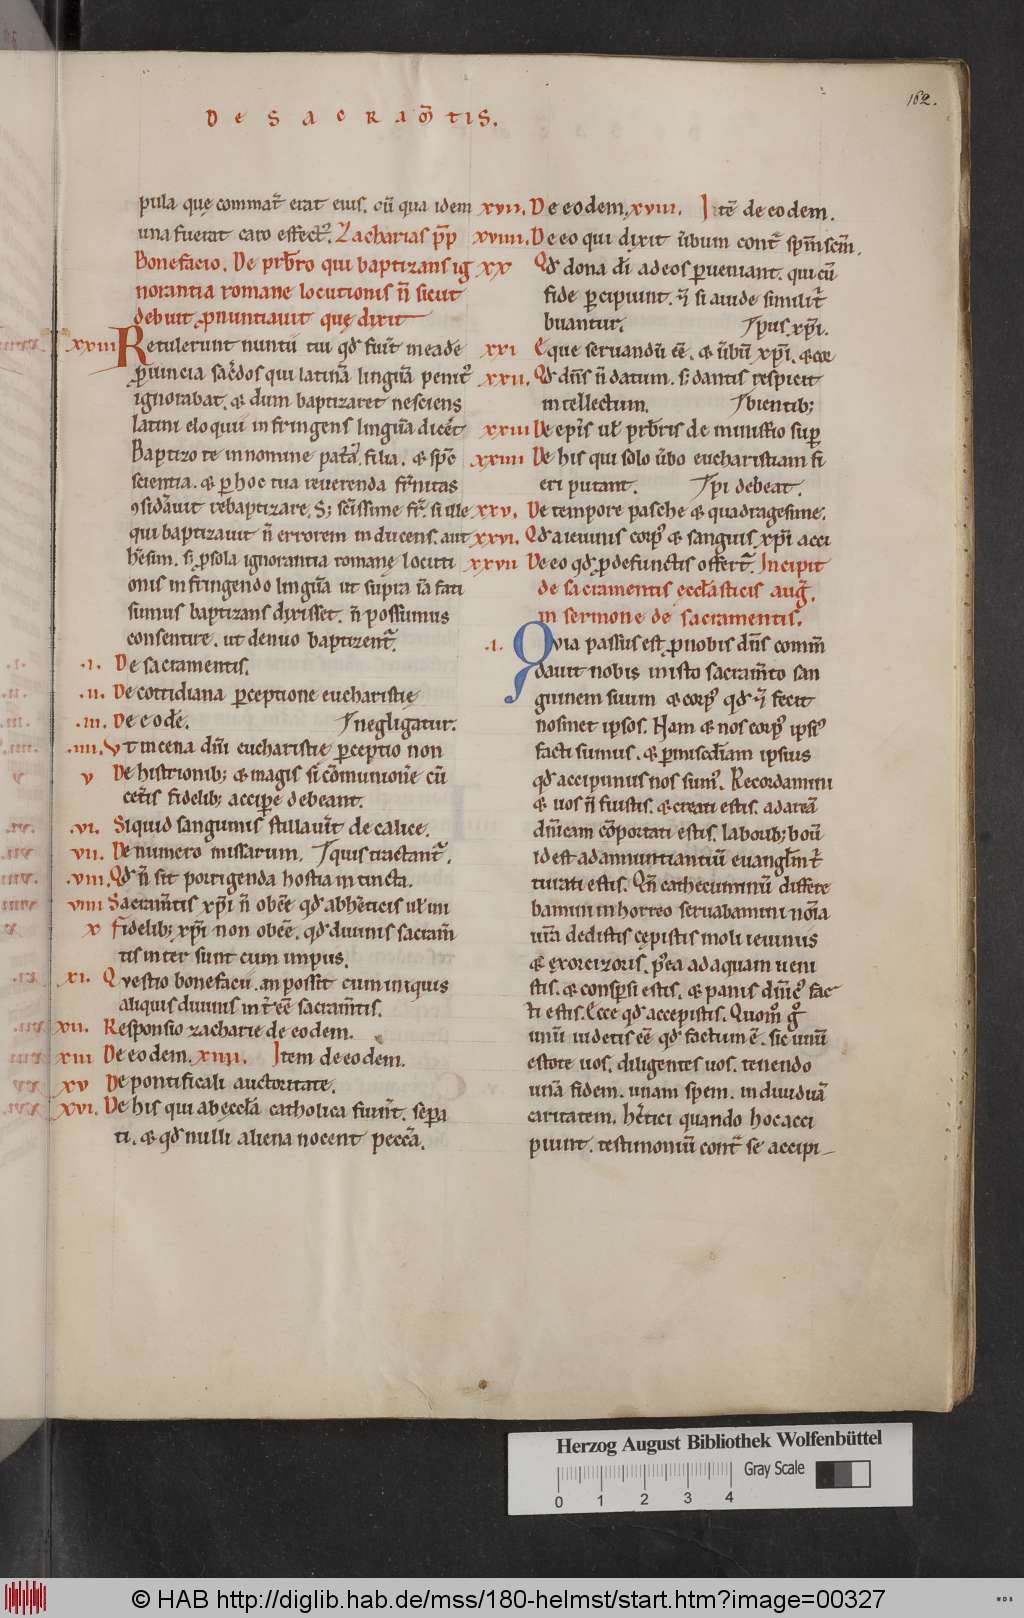 DE SACRAM̄TIS.
162.
pula quę commat̄ erat eius. cū qua idem
una fuerat caro effect᷒. Zacharias p̄p
Bonefacio. De prb̄ro qui baptizans ig
norantia romane locutionis n̄ sicut
debuit ꝓnuntiauit quę dixit
xxiii Retulerunt nuntii tui qd̄ fuīt in eadē
ꝓuincia sac̄dos qui latinā linguā penit᷒
ignorabat. & dum baptizaret nesciens
latini eloquii infringens linguā dicēt
Baptizo te in nomine pat̄a, filia. & sp̄c
scientia. & ꝑ hoc tua reuerenda fr̄nitas
ꝯsidāuit rebaptizare. S; sc̄issime fr̄. si ille
qui baptizauit n̄ errorem inducens. aut
hēsim. s; ꝓ sola ignorantia romanę locuti
onis infringendo linguā ut supra iā fati
sumus baptizans dixisset. n̄ possumus
consentire. ut denuo baptizent̄.
.i. De sacramentis.
.ii. De cottidiana ꝑceptione eucharistię
.iii. De eodē. negligatur.
.iiii. Ut in cena dn̄i eucharistie ꝑceptio non
v De histrionib; & magis si cōmunionē cū
cet̄is fidelib; accipe debeant.
.vi. Siquid sanguinis stillauīt de calice.
vii. De numero missarum. quis tractant̄.
.viii. Qd̄ n̄ sit porrigenda hostia intincta.
viiii Sacram̄tis xp̄i n̄ obēē qd̄ ab heticis ul̄ in
x fidelib; xp̄i non obēē. qd̄ diuinis sacram̄
tis inter sunt cum impiis.
xi. Questio bonefacii. an possīt cum iniquis
aliquis diuinis int̄ ēē sacram̄tis.
xii. Responsio zacharie de eodem.
xiii De eodem. xiiii. Item de eodem.
xv De pontificali auctoritate.
xvi. De his qui ab ęccl̄a catholica fiunt. sepa
ti. & qd̄ nulli aliena nocent peccā.
xvii. De eodem. xviii. Itē de eodem.
xviiii. De eo qui dixit ūbum cont̄ sp̄m sc̄m.
xx Qd̄ dona dī ad eos ꝑueniant. qui cū
fide ꝑcipiunt. n̄ si auide similit̄
buantur. pus xp̄i.
xxi Eque seruandū ēē. & ūbū xp̄i. & cor
xxii. Qd̄ dn̄s n̄ datum. s; dantis respicit
intellectum. bientib;
xxiii De epi̅s ul̄ prb̄ris de minist̄io sup
xxiiii De his qui solo ūbo eucharistiam fi
eri putant. pi debeat.
xxv. De tempore pasche & quadragesime.
xxvi. Qd̄ a ieiunis corp᷒ & sanguis xp̄i acci
xxvii De eo qd̄ ꝓ defunctis offert̄. Incipit
de sacramentis ęccl̄asticis aug̅.
in sermone de sacramentis.
.i. Quia passus est ꝓ nobis dn̄s comm̄
dauit nobis in isto sacram̄to san
guinem suum & corp᷒ qd̄ n̄ fecit
nosmet ipsos. Nam & nos corp᷒ ipsi᷒
facti sumus. & ꝑ misc̄diam ipsius
qd̄ accipimus nos sum᷒. Recordamini
& uos n̄ fuistis. & creati estis. ad areā
dn̄icam cōportati estis. laborib; boū
id est adannuntiantiū euangl̄m t̄
turati estis. Qn̄ cathecuminū differe
bamini in horreo seruabamini nōīa
ur̄a dedistis cępistis moli ieiuniis
& ęxorcizoris. p̄ea ad aquam ueni
stis. & consp̄si estis. & panis dn̄ic᷒ fac
ti estis. Ecce qd̄ accepistis. Quom̊ g̊
unū iudetis ēē qd̄ factum ē. sic unū
estote uos. diligentes uos. tenendo
unā fidem. unam spem. indiuiduā
caritatem. hētici quando hoc acci
piunt. testimoniū cont̄ se accipi
Herzog August Bibliothek Wolfenbüttel
Gray Scale
0 1 2 3 4
© HAB http://diglib.hab.de/mss/180-helmst/start.htm?image=00327